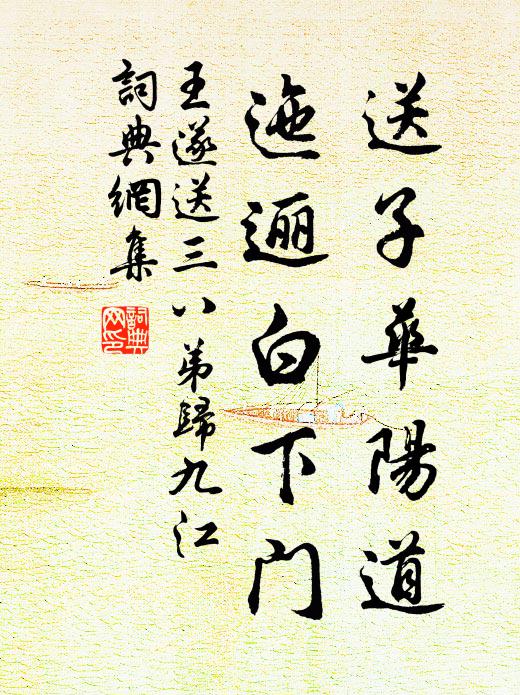 送子華陽道
迤逦白下門
王遂送三八弟歸九江
詞典網集
詞典网印